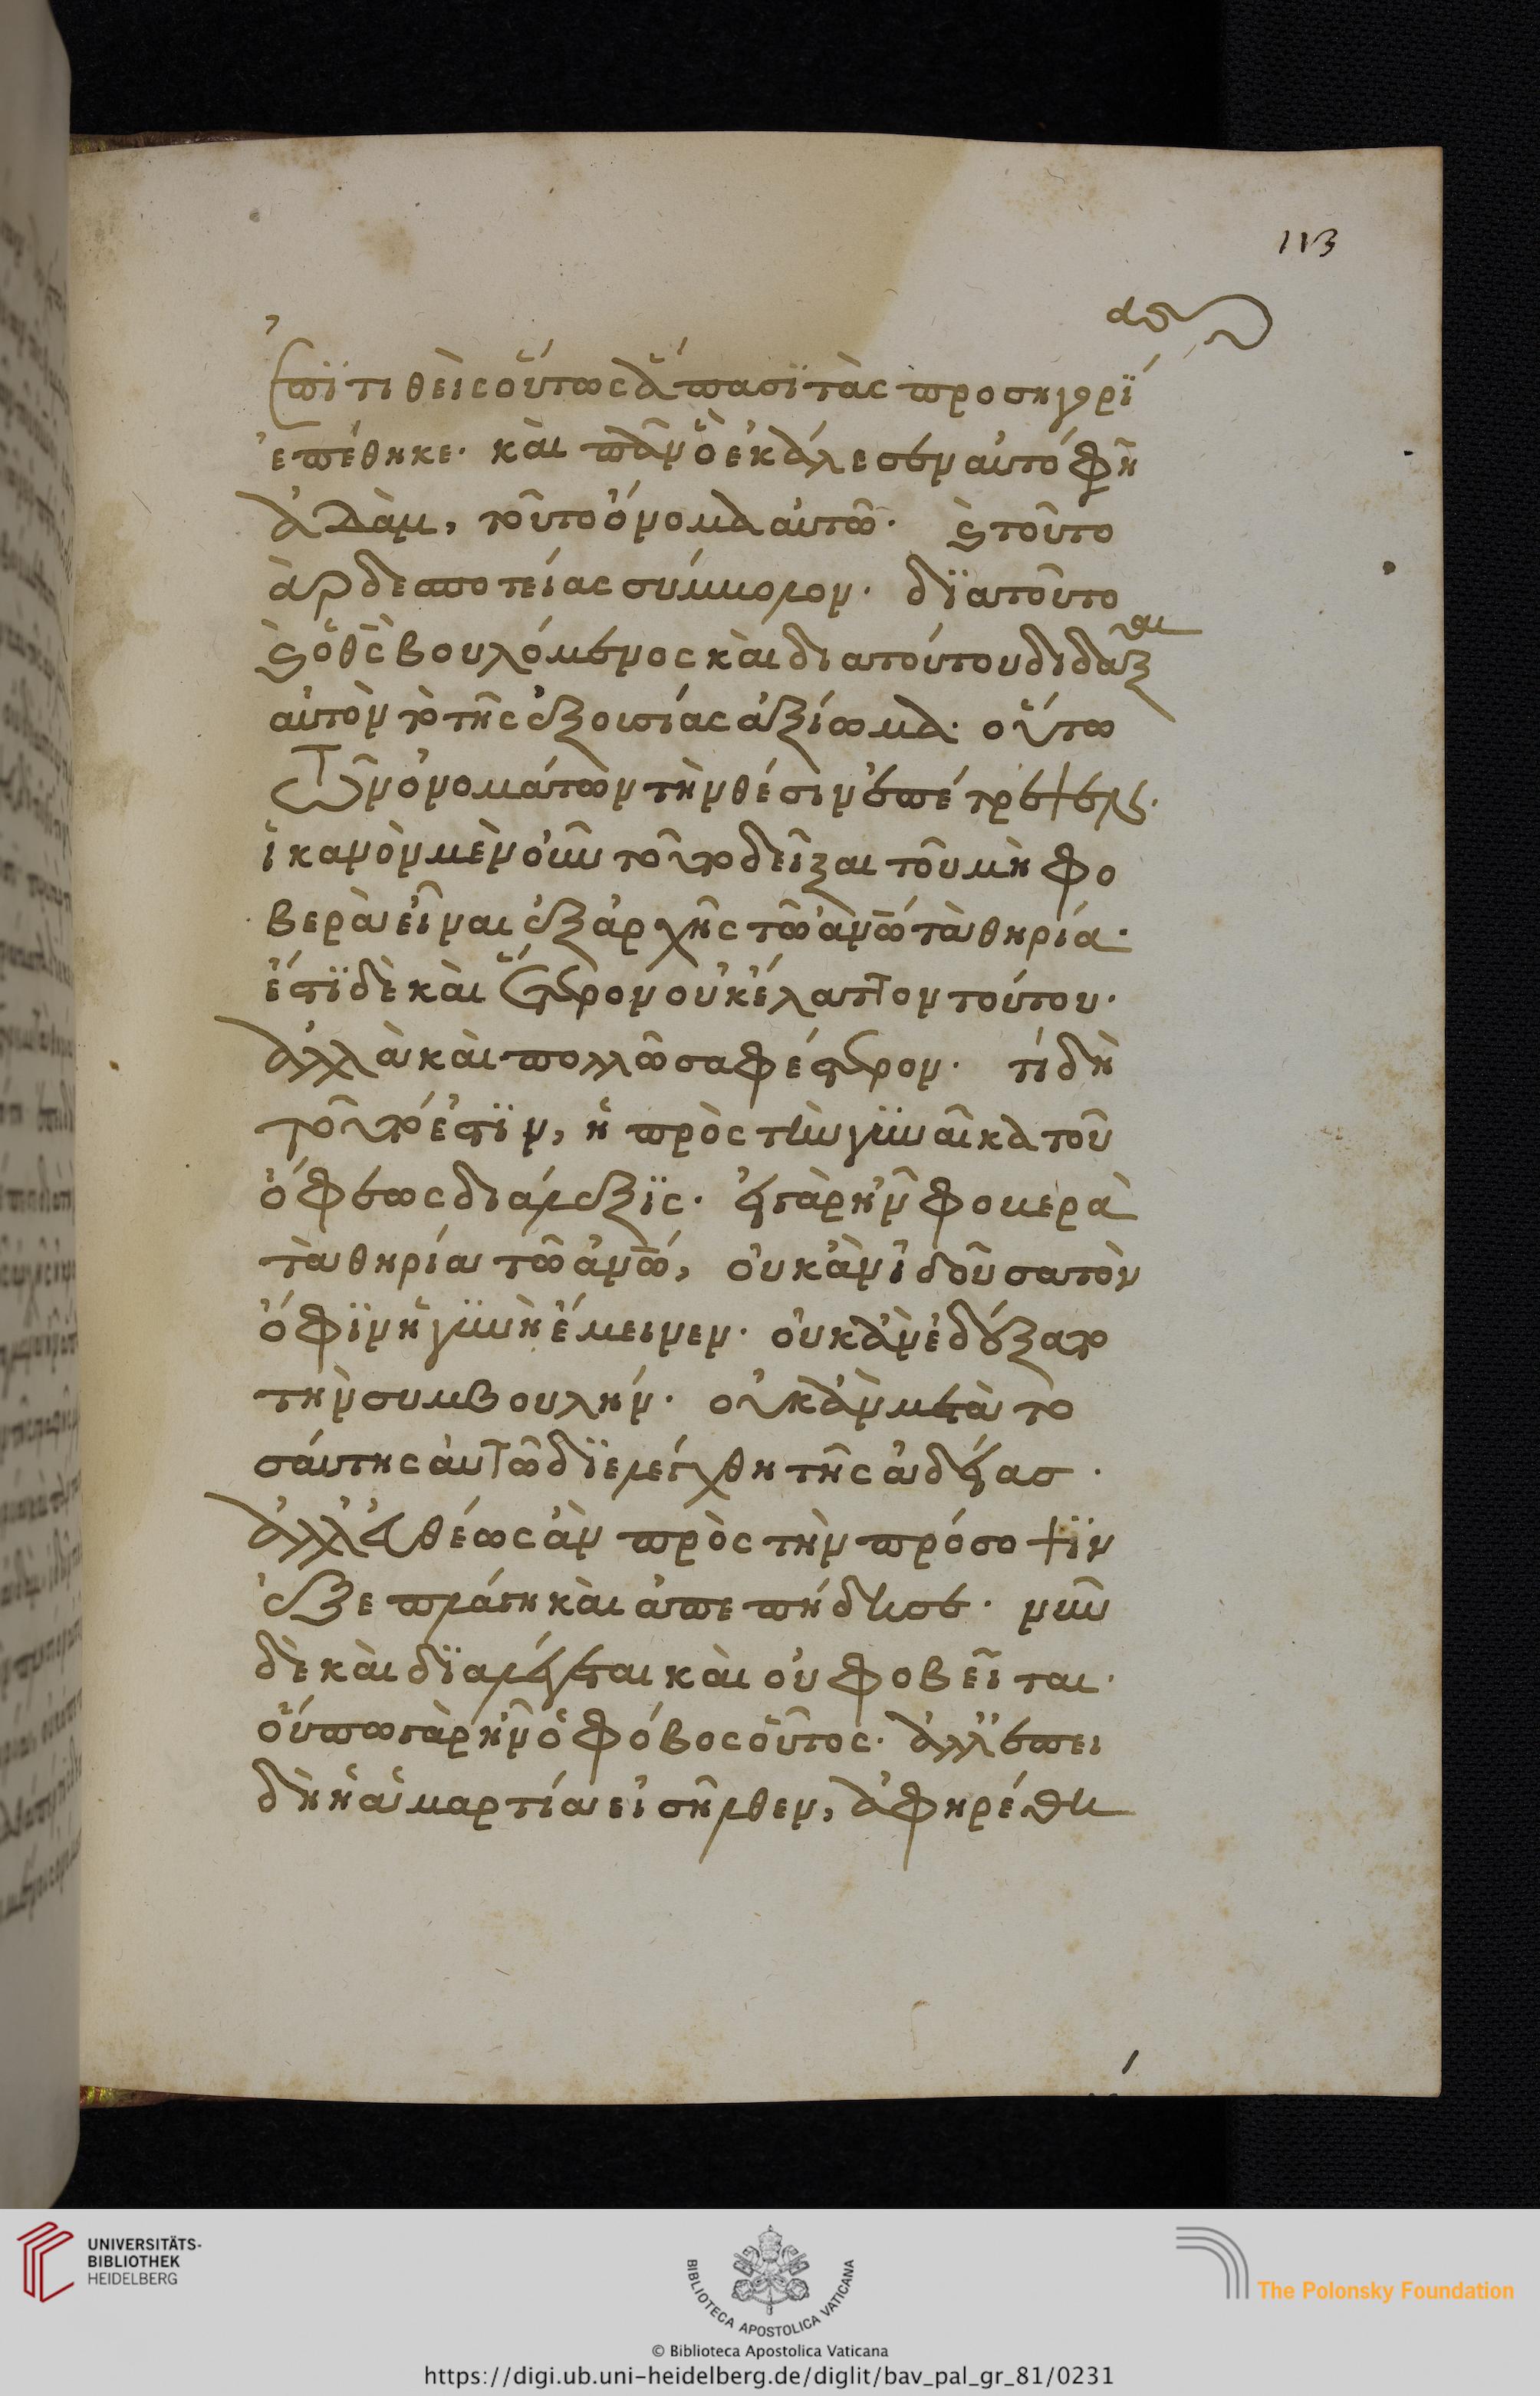 113
ας
ἐπϊτιθεὶς οὕτως ἅπασϊ τὰς προσηγορϊ
ἐπέθηκε· καὶ πᾶν ὃ ἐκάλεσεν αὐτό φη
ἀδὰμ, τοῦτο ὄνομα αὐτῶ· καὶ τοῦτο
ἀρ δεσποτείας σύμβολον· δϊατοῦτο
καὶ ὁ θς βουλόμενος καὶ διατούτου διδάξαι
αὐτὸν τὸ τῆς ἐξουσίας ἀξίωμα· οὕτω
τῶν ὀνομάτων τὴν θέσιν ἐπέτρεψεν·
ἱκανὸν μὲν οὖν τοῦτο δεῖξαι τοῦ μὴ φο
βερὰ εἶναι ἐξαρχῆς τῶ ἀνῶ τὰ θηρία·
ἔστϊ δὲ καὶ ἕτερον οὐκ ἔλαττον τούτου·
ἀλλὰ καὶ πολλῶ σαφέστερον· τί δὴ
τοῦτό ἐστϊν, ἡ πρὸς τὴν γϋναῖκα τοῦ
ὄφεως διάλεξϊς· εἰ γὰρ ἦν φοβερὰ
τὰ θηρία τῶ ἀνῶ, οὐκ ἂν ἰδοῦσα τὸν
ὄφϊν ἡ γϋνὴ ἔμεινεν· οὐκ ἂν ἐδέξατο
τὴν συμβουλήν· οὐκ ἂν μετὰ το
σαύτης αὐτῶ δϊελέχθη τῆς ἀδείας·
ἀλλ' εὐθέως ἂν πρὸς τὴν πρόσοψϊν
ἐξεπλάγη καὶ ἀπεπήδησε· νῦν
δὲ καὶ δϊαλέγεται καὶ οὐ φοβεῖται·
οὔπω γὰρ ἦν ὁ φόβος οὗτος· ἀλλ' ἐπει
δὴ ἡ ἁμαρτία εἰσῆλθεν, ἀφηρέθη
UNIVERSITÄTS-
BIBLIOTHEK
HEIDELBERG
BIBLIOTECA APOSTOLICA VATICANA
The Polonsky Foundation
© Biblioteca Apostolica Vaticana
https://digi.ub.uni-heidelberg.de/diglit/bav_pal_gr_81/0231